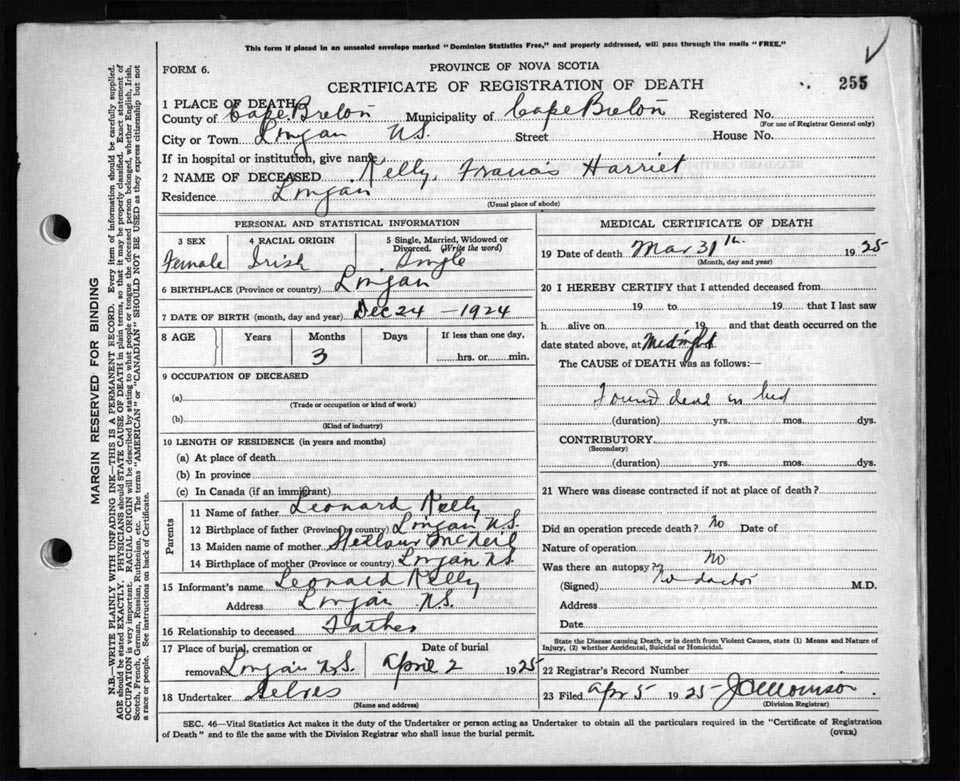 This form if placed in an unsealed envelope marked "Dominion Statistics Free," and properly addressed, will pass through the mails "FREE."
FORM 6.
PROVINCE OF NOVA SCOTIA
CERTIFICATE OF REGISTRATION OF DEATH
255
1 PLACE OF DEATH
County of Cape Breton Municipality of Cape Breton Registered No.
(For use of Registrar General only)
City or Town Lingan N.S. Street House No.
If in hospital or institution, give name
2 NAME OF DECEASED Kelly, Francis Harriet
Residence Lingan
(Usual place of abode)
PERSONAL AND STATISTICAL INFORMATION
3 SEX 4 RACIAL ORIGIN 5 Single, Married, Widowed or Divorced. (Write the word)
Female Irish Single
6 BIRTHPLACE (Province or country) Lingan
7 DATE OF BIRTH (month, day and year) Dec 24 - 1924
8 AGE Years Months Days If less than one day,
3 hrs. or min.
9 OCCUPATION OF DECEASED
(a)
(Trade or occupation or kind of work)
(b)
(Kind of industry)
10 LENGTH OF RESIDENCE (in years and months)
(a) At place of death
(b) In province
(c) In Canada (if an immigrant)
Parents
11 Name of father Leonard Kelly
12 Birthplace of father (Province or country) Lingan N.S.
13 Maiden name of mother McNeil
14 Birthplace of mother (Province or country) Lingan N.S.
15 Informant's name Leonard Kelly
Address Lingan N.S.
16 Relationship to deceased Father
17 Place of burial, cremation or removal Lingan N.S. Date of burial April 2 1925
18 Undertaker Selves
(Name and address)
MEDICAL CERTIFICATE OF DEATH
19 Date of death Mar 31th 1925
(Month, day and year)
20 I HEREBY CERTIFY that I attended deceased from
19 to 19 that I last saw
h alive on 19 and that death occurred on
date stated above, at Midnight
The CAUSE of DEATH was as follows:—
Found dead in bed
(duration) yrs. mos. dys.
CONTRIBUTORY
(Secondary)
(duration) yrs. mos. dys.
21 Where was disease contracted if not at place of death?
Did an operation precede death? No Date of
Nature of operation
Was there an autopsy? No
(Signed) No doctor M.D.
Address
Date
State the Disease causing Death, or in death from Violent Causes, state (1) Means and Nature of Injury, (2) whether Accidental, Suicidal or Homicidal.
22 Registrar's Record Number
23 Filed Apr 5 1925 J C Morrison
(Division Registrar)
SEC. 46—Vital Statistics Act makes it the duty of the Undertaker or person acting as Undertaker to obtain all the particulars required in the "Certificate of Registration
of Death" and to file the same with the Division Registrar who shall issue the burial permit.
(OVER)
MARGIN RESERVED FOR BINDING
N.B.—WRITE PLAINLY WITH UNFADING INK—THIS IS A PERMANENT RECORD. Every item of information should be carefully supplied.
AGE should be stated EXACTLY. PHYSICIANS should STATE CAUSE OF DEATH in plain terms, so that it may be properly classified. Exact statement of
OCCUPATION is very important. RACIAL ORIGIN will be described by stating to what people or tongue the deceased person belonged, whether English, Irish,
Scotch, French, German, Russian, Ruthenian, etc. The terms "AMERICAN" or "CANADIAN" SHOULD NOT BE USED as they express citizenship but not
a race or people. See instructions on back of Certificate.